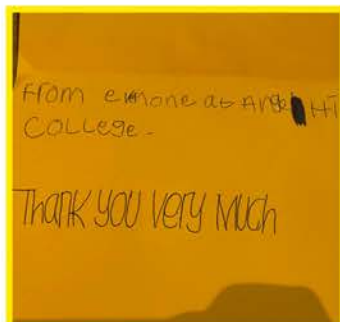 From emone at Ange HI
COLLege.
Thank you very Much